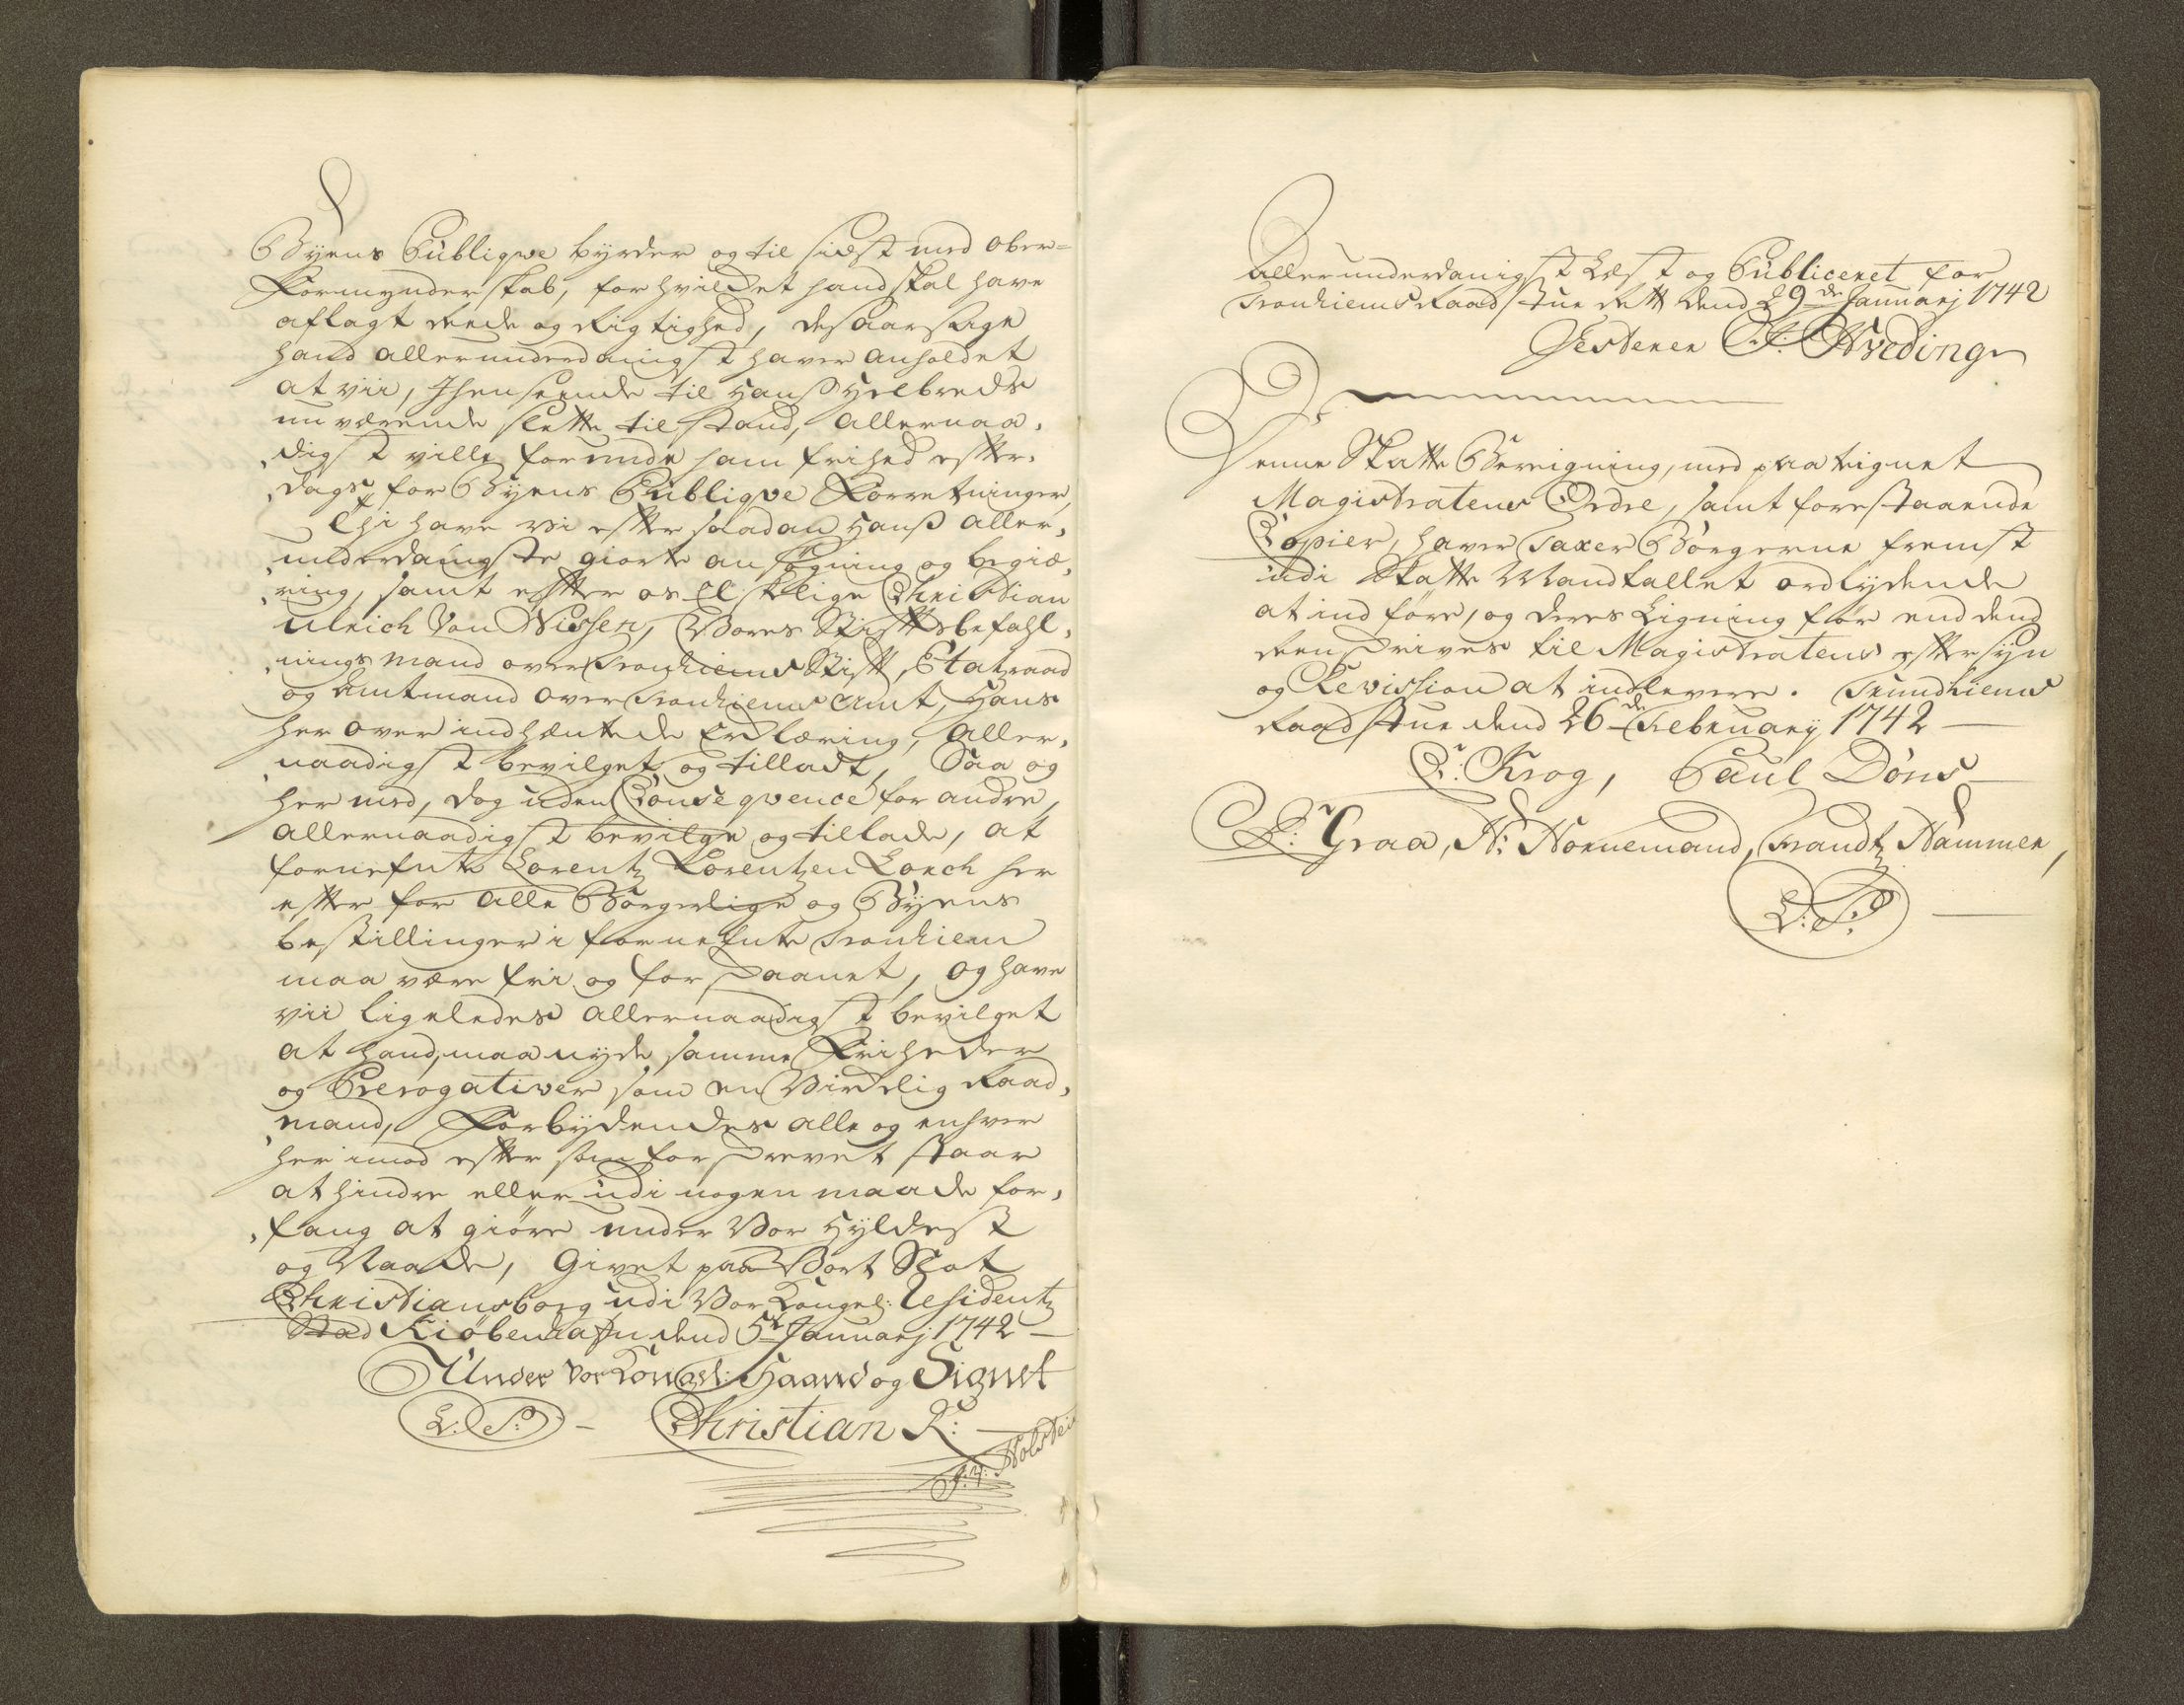 Byens Publiqve byrder og til sidst med ober-
Formynderskab, for hvilcket hand skal have
aflagt Reede og Rigtighed, desaarsage
hand allerunderdanigst haver anholdet
at vii, J henseende til Hanß Helbreds
nu værende slette tilstand, allernaa,
,digst ville forunde ham frihed efter,
,dags for Byens Publiqve Forretninger,
Thi have vi efter saadan Hanß aller,
,underdanigste giorte ansøgning og begiæ,
,ring, samt efter os Elskelige Christian
Ulrich Von Nissen, Vores Stiftsbefahl,
,nings mand over Tronhiems Stift, Etatzraad
og Amtmand over Tronhiems Amt, Hans
her over indhæntede Erklæring, Aller,
,naadigst bevilget og tilladt, Saa og
her med, dog uden Conseqvence for andre,
allernaadigst bevilge og tillade, at
fornefnte Lorentz Lorentzen Lorch her
efter for alle Borgerlige og Byens
bestillinger i fornefnte Tronhiem
maa være fri og forskaanet, og have
vii ligeledes allernaadigst bevilget
at hand maa nyde samme Friheder
og Prerogativer som en Virckelig Raad,
,mand, Forbydendes alle og enhver
her imod efter som forskrevet staar
at hindre eller udi nogen maade for,
,fang at giøre under Vor Hyldest
og Naade, Givet paa Vort Slot
Christiansborg udi Vor Kongel: Residentz
Stad Kiøbenhafn dend 5te Januarj 1742
Under Vor Kongel: Haand og Signet
L: S: - Christian R:
J: L: Holstein
Allerunderdanigst Læst og Publiceret for
Tronhiems Raadstue Rett dend 29de Januarj 1742
Testerer Hveding
Denne Skatte Bereigning, med paateignet
Magistratens Ordre, samt forestaaende
Copier, haver Taxer Borgerne fremst
udi Skatte Mandtallet ordlydende
at ind føre, og deres Ligning før end dend
Reenskrives til Magistratens eftersyn
og Revission at indlevere. Trundhiems
Raadstue dend 26de February 1742
C: Krog, Paul Döns
P: Graa, H: Hornemand, Frandtz Hammer,
L: S: